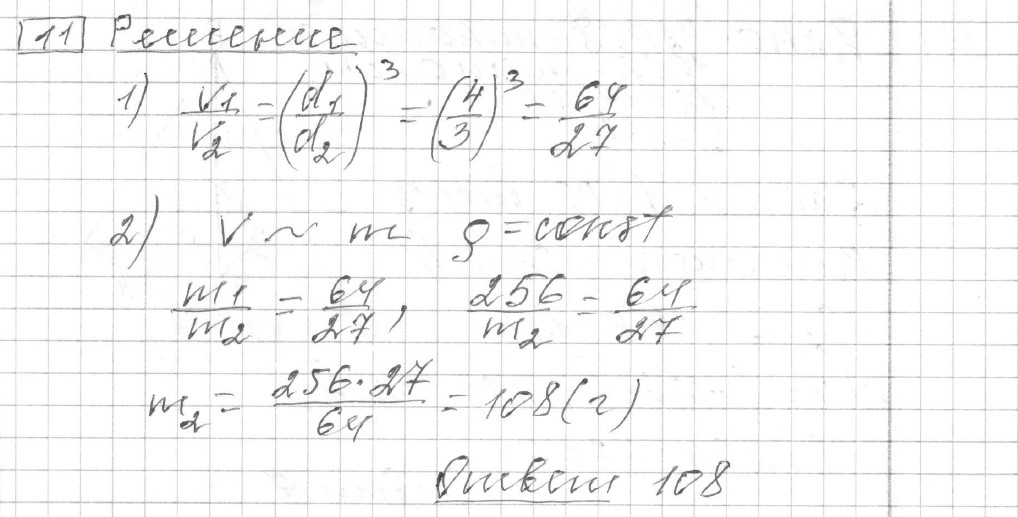 11 Решение
1) V1/V2 = (d1/d2)^3 = (4/3)^3 = 64/27
2) V ~ m ρ = const
m1/m2 = 64/27, 256/m2 = 64/27
m2 = 256·27/64 = 108 (г)
Ответ 108